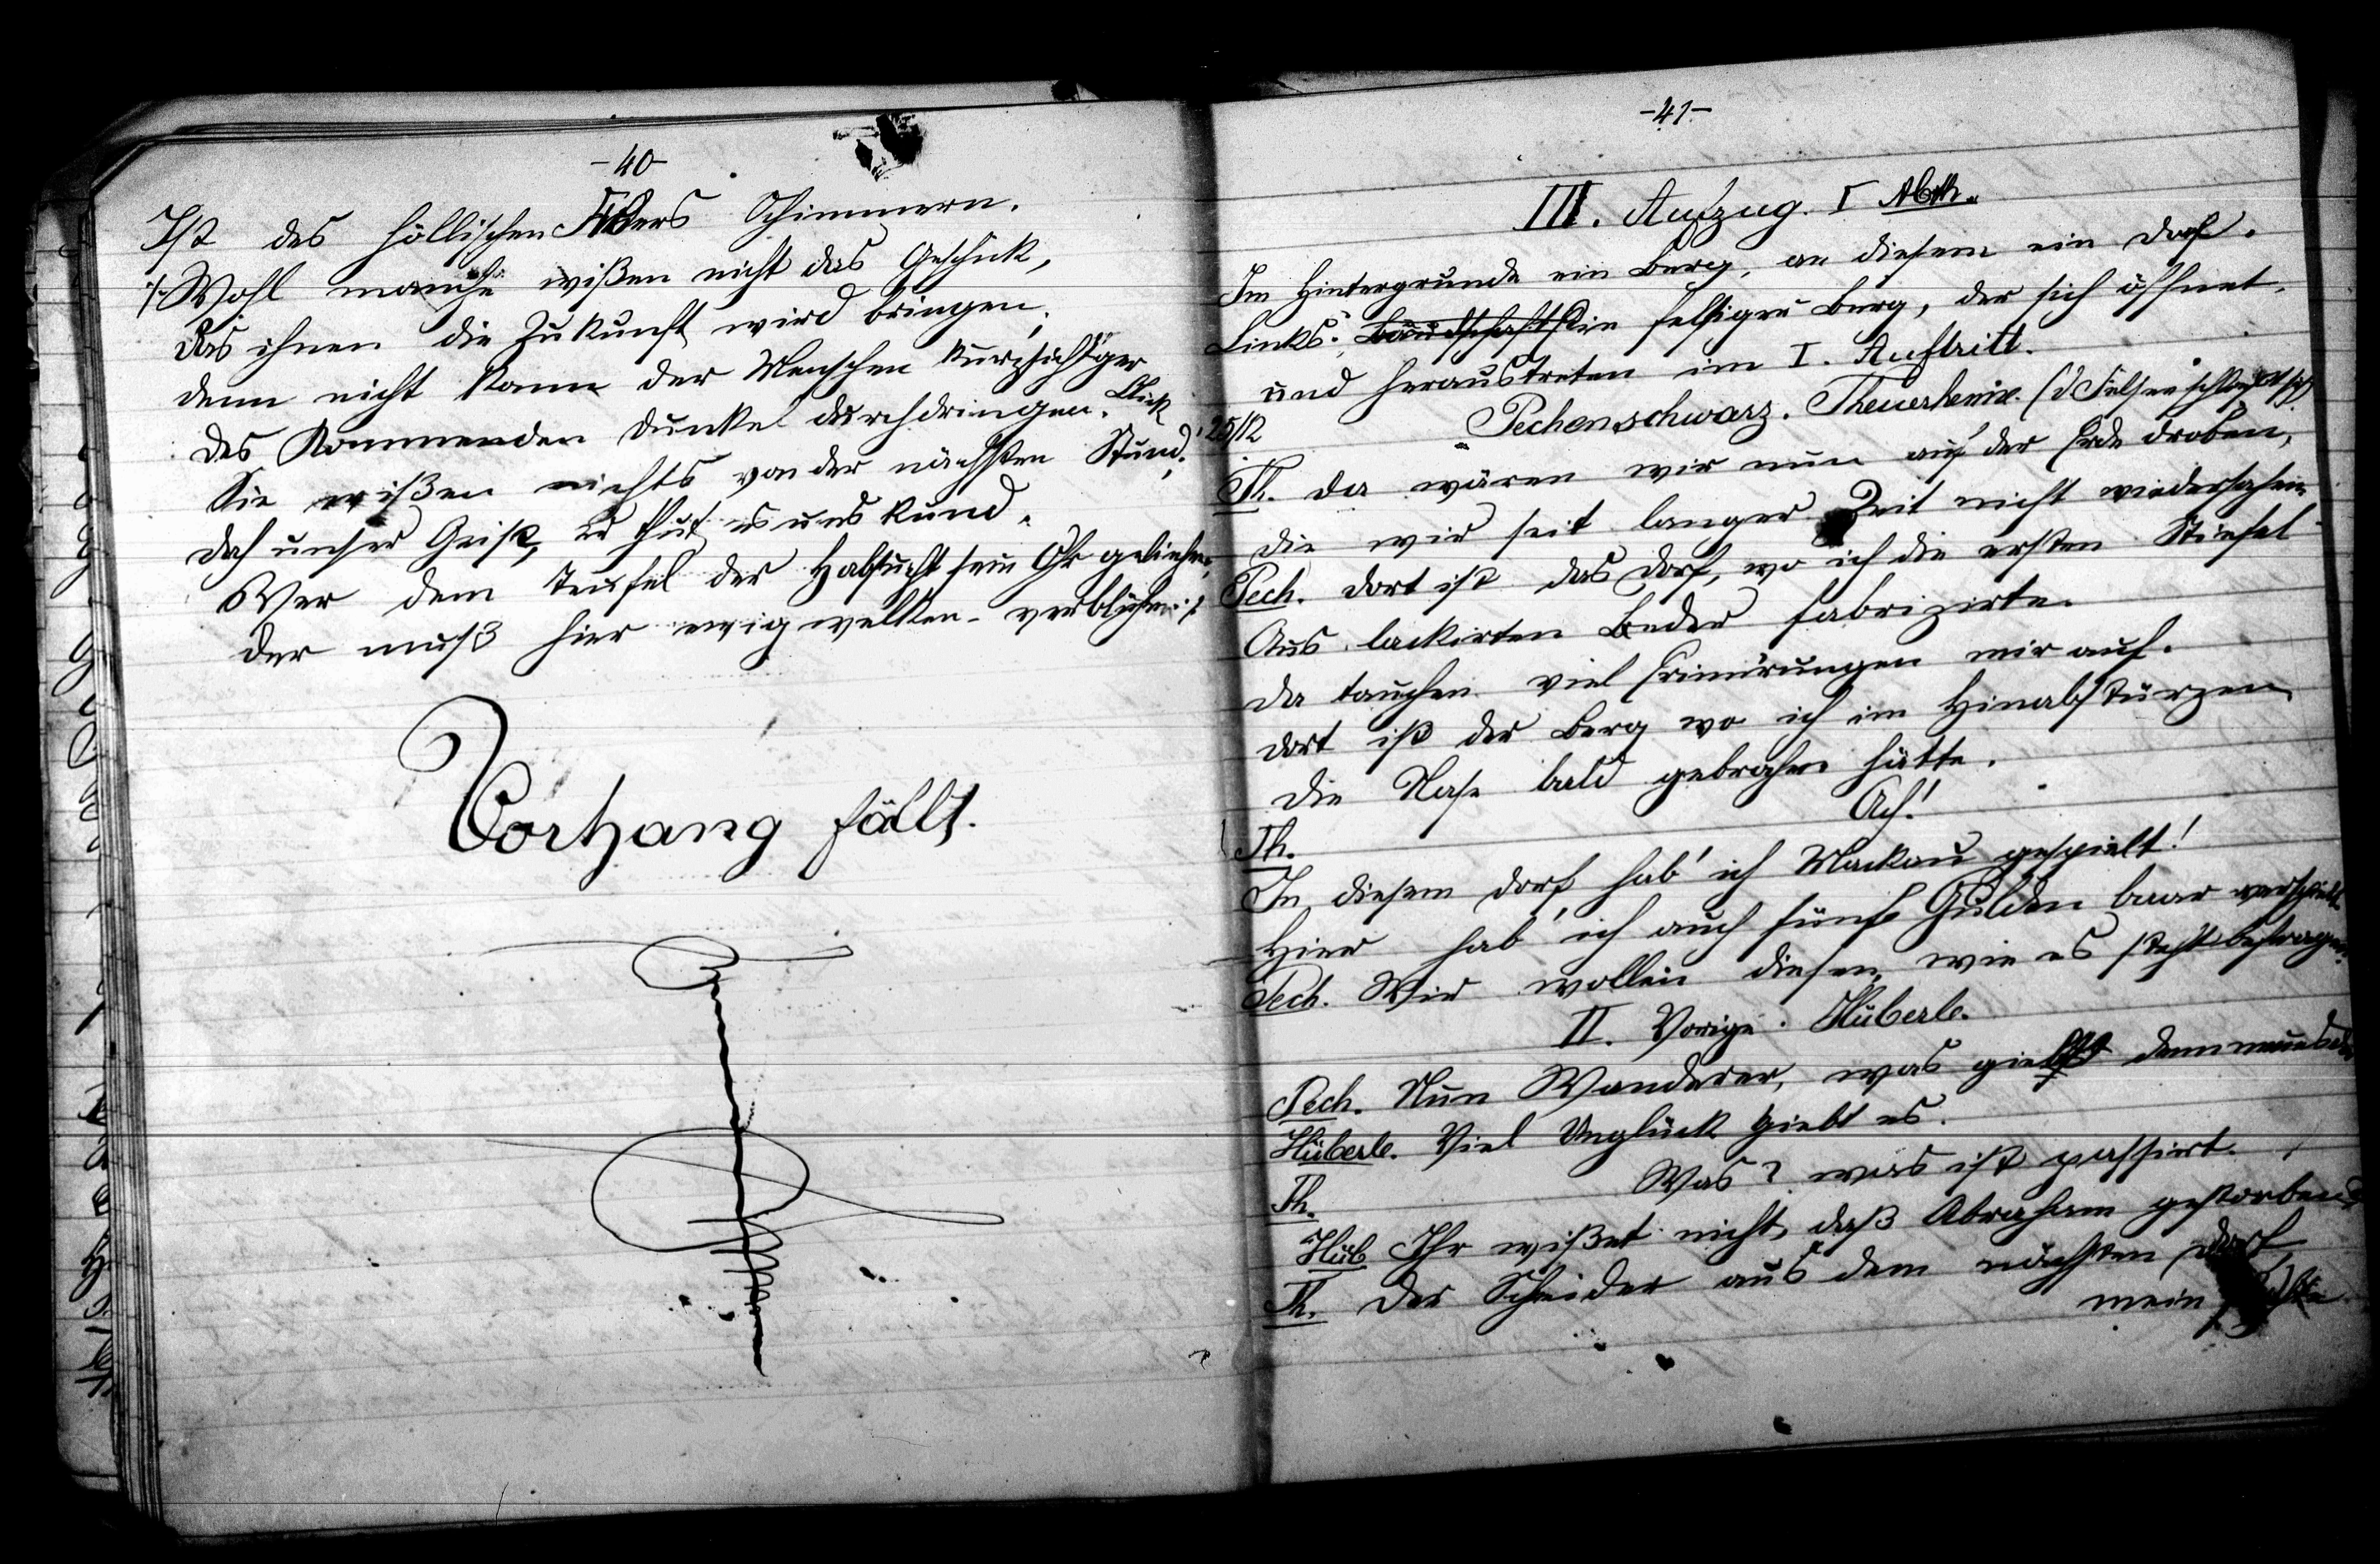 -40-
Ist des höllischen Feuers Schimmern.
/: Wohl manche wißen nicht das Geschick,
Das ihnen die Zukunft wird bringen;
Denn nicht kann der Menschen kurzsichtiger
Blick
Des Kommenden Dunkel durchdringen.
Sie wißen nichts von der nächsten Stund,
Doch unser Geist, er thut es uns kund.
Wer dem Teufel der Habsucht sein Ohr geliehen,
Der muß hier ewig welken - verblühen :/
Vorhang fällt.
-41-
III. Aufzug. I Abth.
Im Hintergrunde ein Berg, an diesem ein Dorf.
Links: ein felsiger Berg, der sich öffnet.
und heraustreten im I. Auftritt.
25/12
Pechenschwarz. Theuerkenix. (d Felsen schließt sich)
Th. Da wären wir nun auf der Erde droben,
Die wir seit langer Zeit nicht wiedersahen
Pech. Dort ist das Dorf, wo ich die ersten Stiefel
Aus lackirten Leder fabrizirte.
Da tauchen viel Erinnrungen mir auf.
Dort ist der Berg wo ich im Hinabstürzen
Die Nase bald gebrochen hätte.
Th. Ach!
In diesem Dorf hab' ich Mackau gespielt!
Hier hab' ich auch fünf Gulden baar verspielt.
Pech. Wir wollen diesen, wie es steht befragen.
II. Vorige. Hüberle.
Pech. Nun Wanderer, was giebts denn neues
Hüberle. Viel Unglück giebt es.
Th. Was? was ist passirt.
Hüb Ihr wißet nicht, daß Abraham gestorben
Th. Der Schneider aus dem nächsten Dorf,
mein